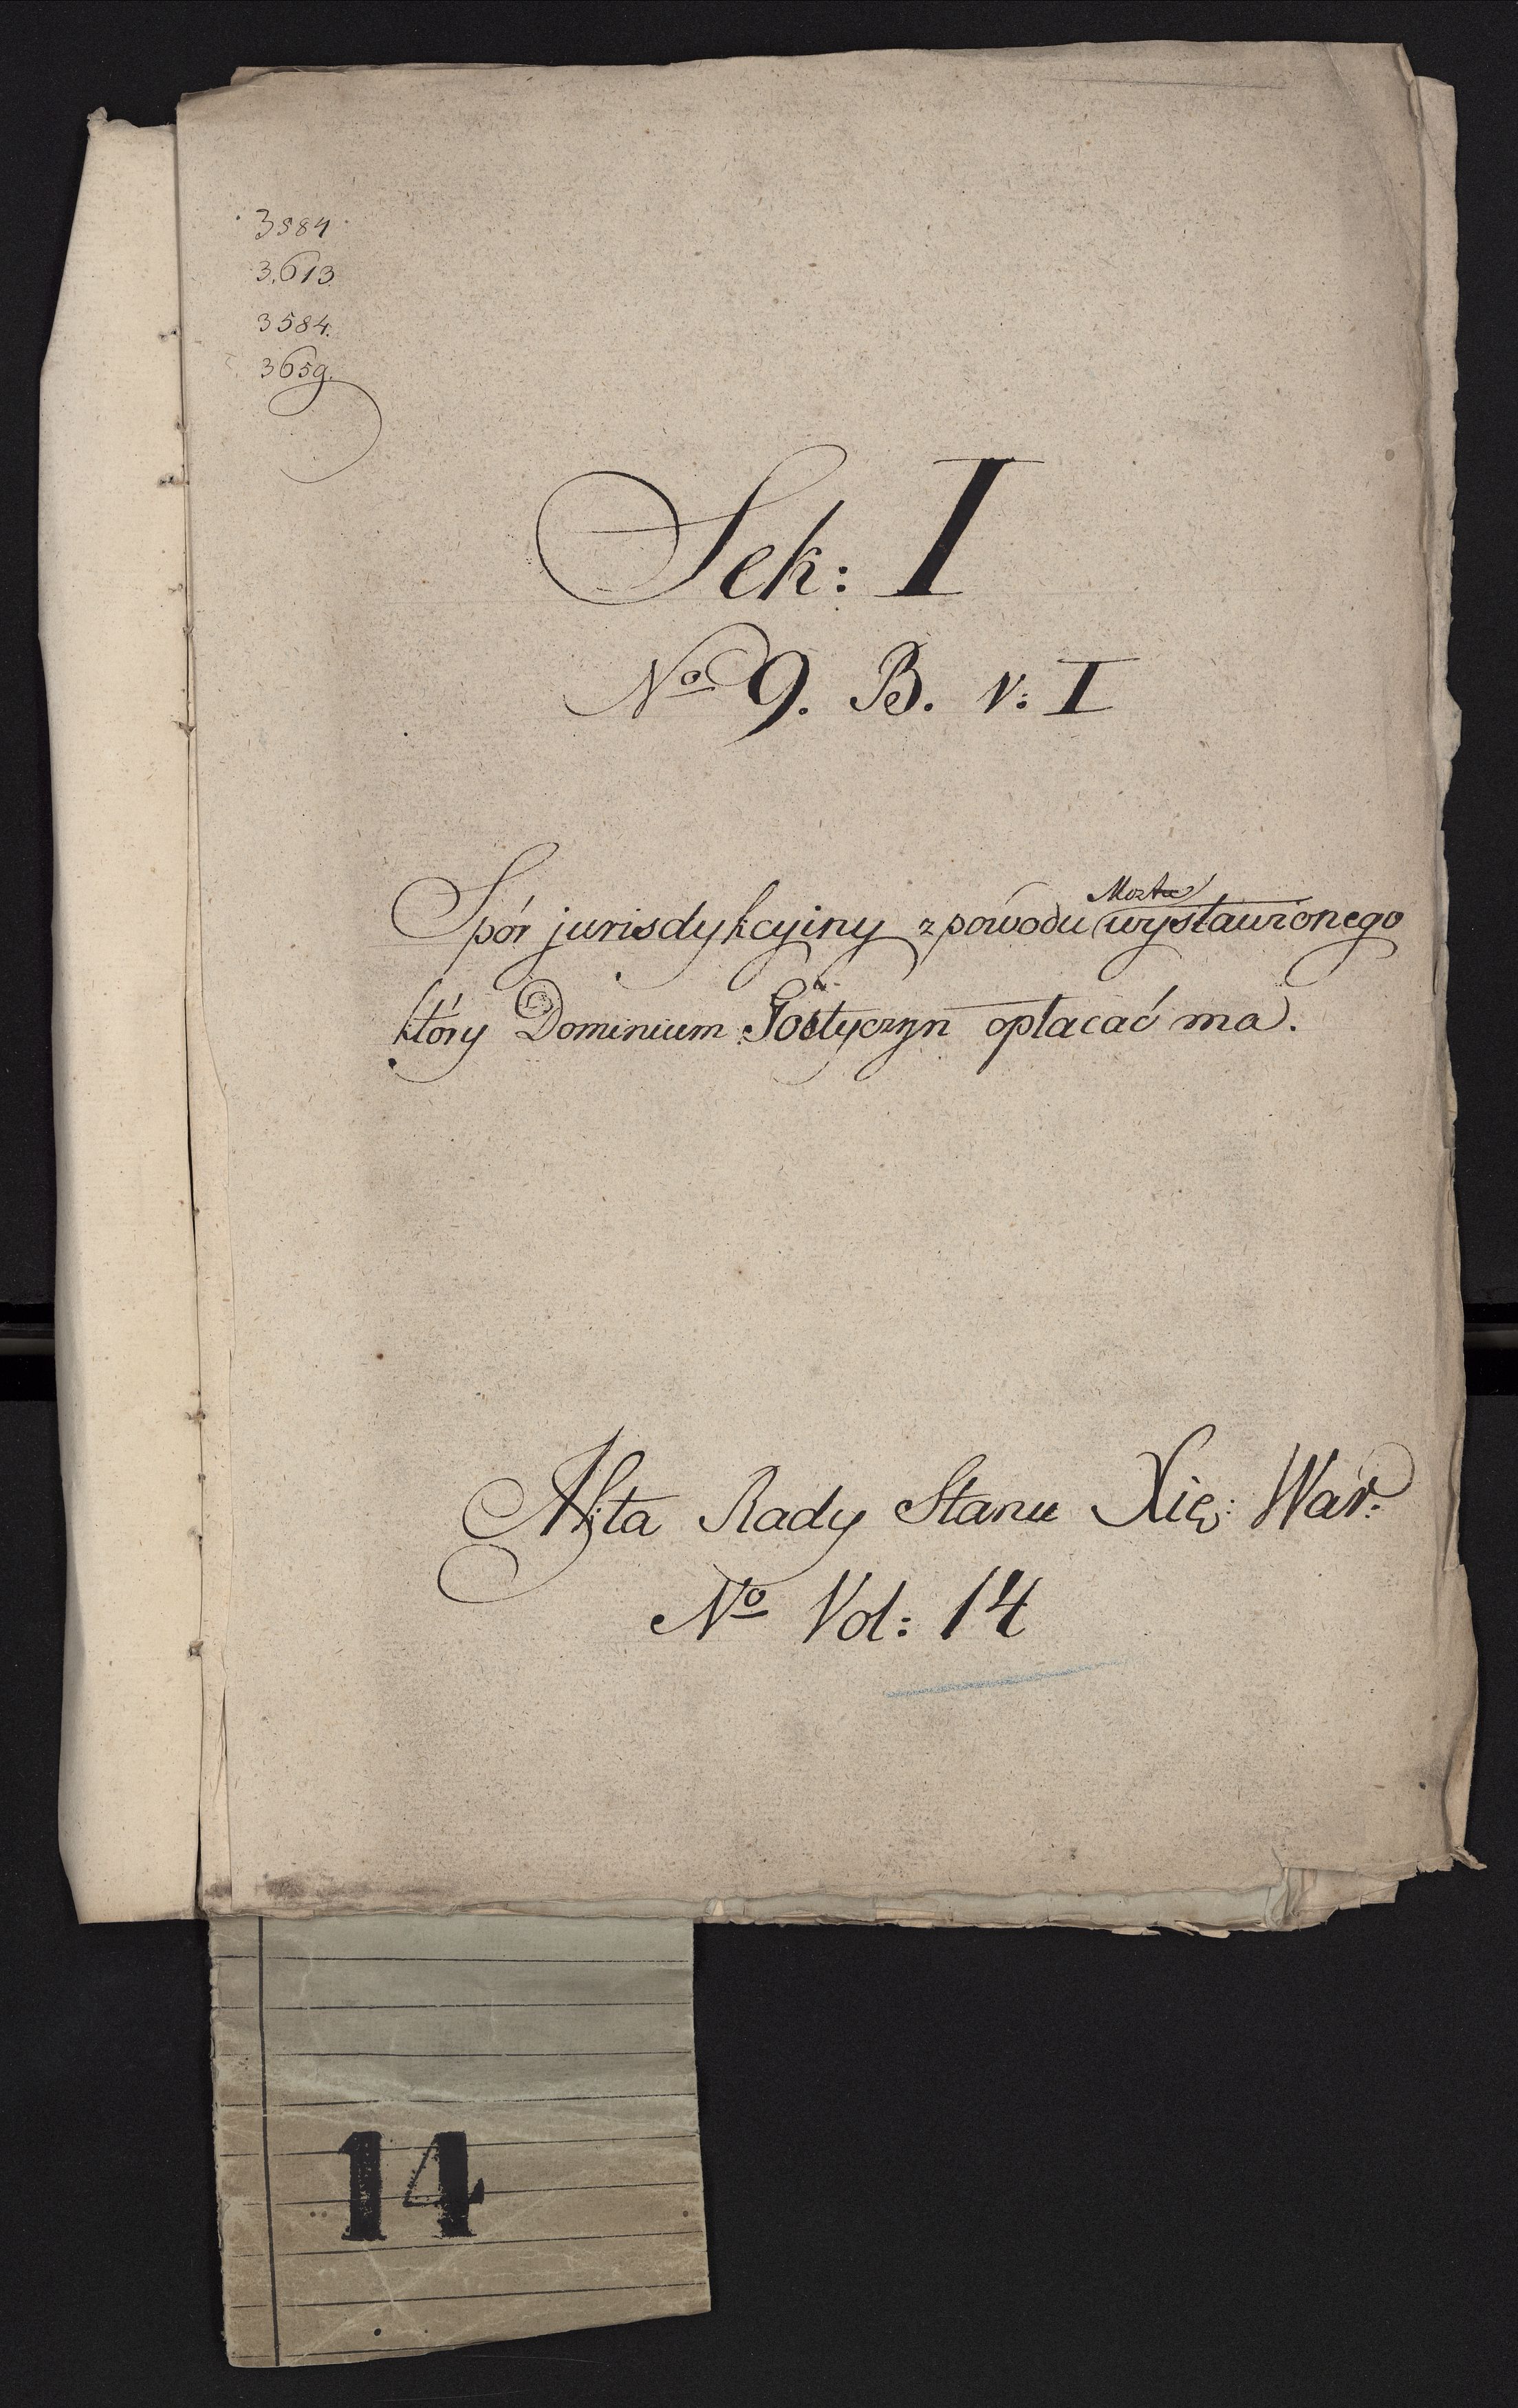 3584
3.613
3584.
3659.
Sek: I
No 9. B. v: I
Mostu
Spór jurisdykcyiny z powodu wystawionego
który Dominium Gostyczyn opłacać ma.
Akta Rady Stanu Xię: War:
No Vol: 14
14